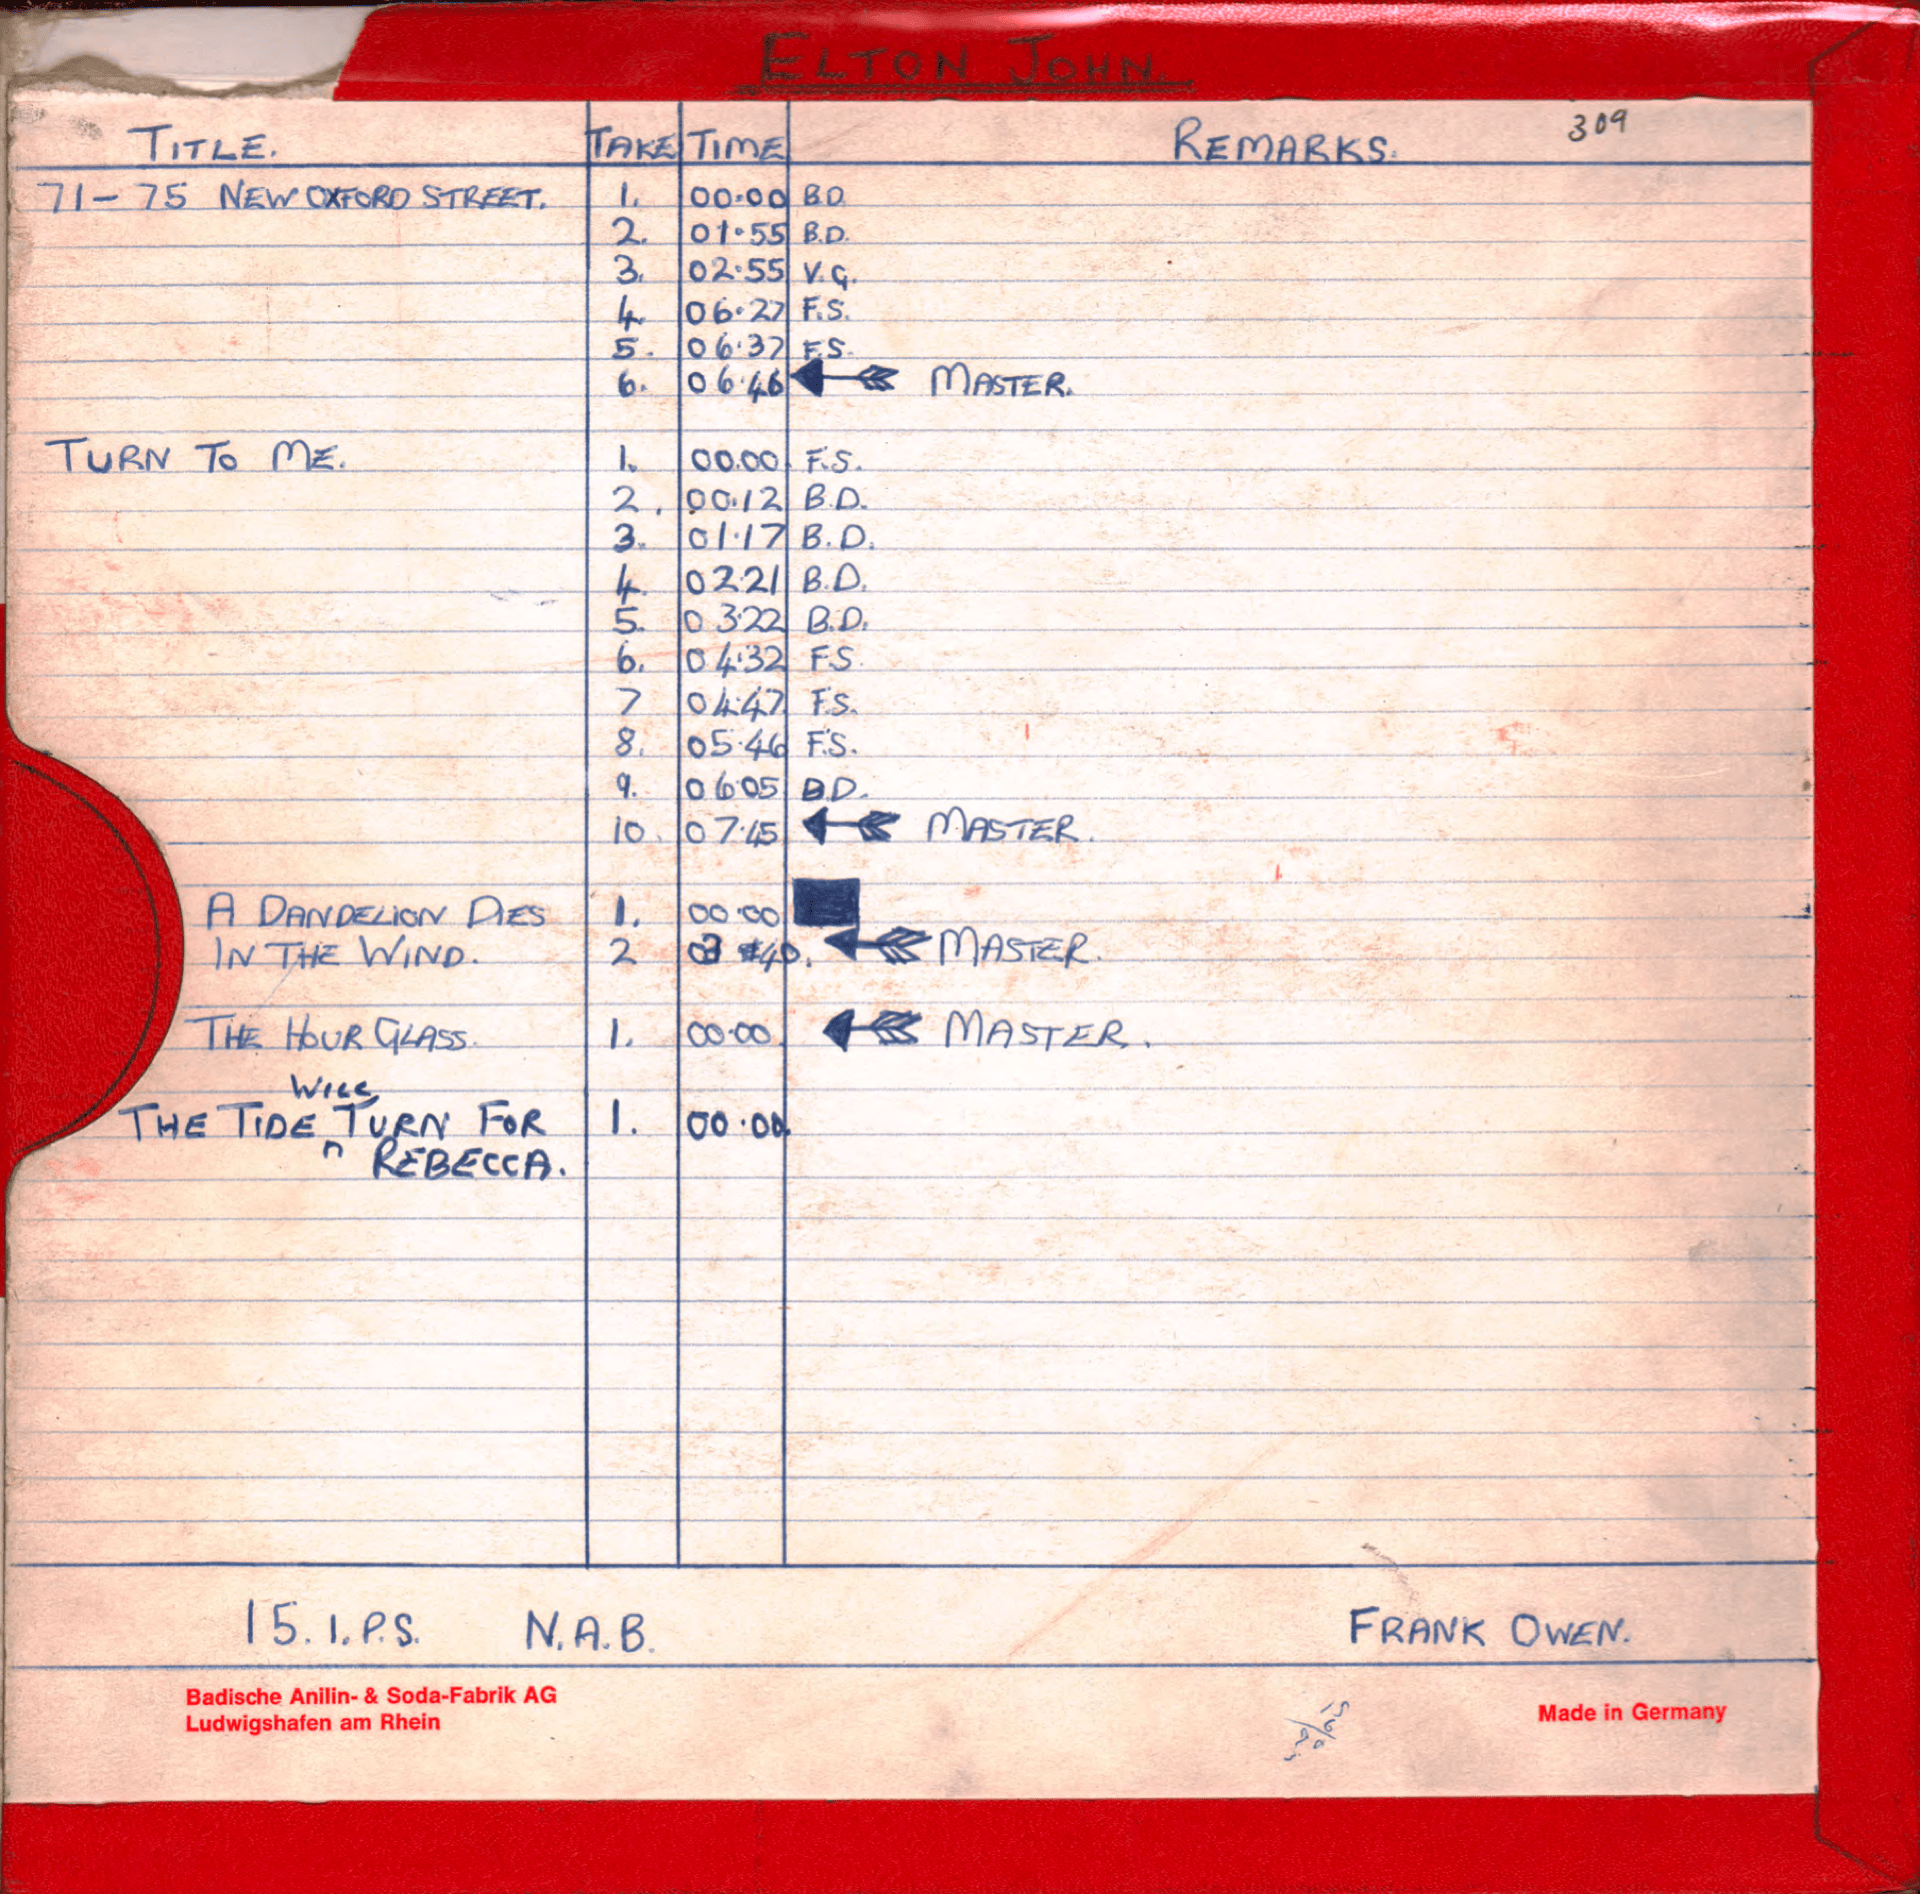 ELTON JOHN.
309
TITLE. TAKE TIME REMARKS.
71-75 NEW OXFORD STREET. 1. 00.00 B.D.
2. 01.55 B.D.
3. 02.55 V.G.
4. 06.27 F.S.
5. 06.37 F.S.
6. 06.46 MASTER.
TURN TO ME. 1. 00.00 F.S.
2. 00.12 B.D.
3. 01.17 B.D.
4. 02.21 B.D.
5. 03.22 B.D.
6. 04.32 F.S
7 04.47 F.S.
8. 05.46 F.S.
9. 06.05 B.D.
10. 07.45 MASTER.
A DANDELION DIES 1. 00.00
IN THE WIND. 2 03 40. MASTER.
THE HOUR GLASS. 1. 00.00 MASTER.
WILL
THE TIDE TURN FOR 1. 00.00
REBECCA.
15. I.P.S. N.A.B. FRANK OWEN.
Badische Anilin- & Soda-Fabrik AG
Ludwigshafen am Rhein
Made in Germany